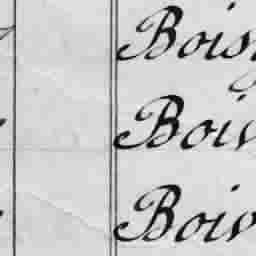 Bois
Boiv
Boiv